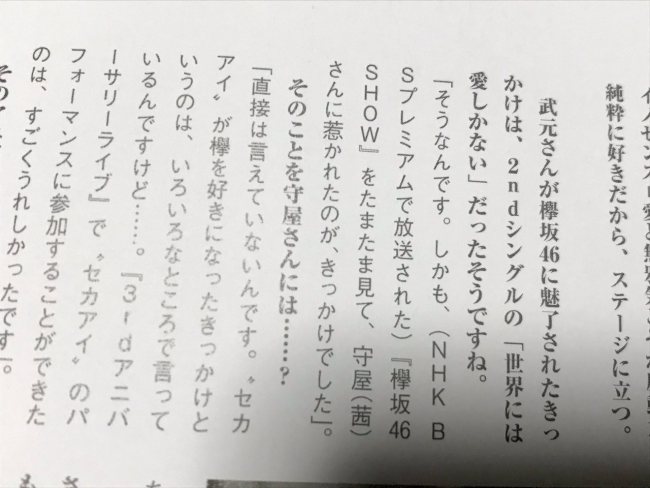 純粋に好きだから、ステージに立つ。
武元さんが欅坂46に魅了されたきっ
かけは、2ndシングルの「世界には
愛しかない」だったそうですね。
「そうなんです。しかも、（NHK B
Sプレミアムで放送された）『欅坂46
SHOW』をたまたま見て、守屋（茜）
さんに惹かれたのが、きっかけでした」。
そのことを守屋さんには……？
「直接は言えていないんです。〝セカ
アイ〟が欅を好きになったきっかけと
いうのは、いろいろなところで言って
いるんですけど……。『3rdアニバ
ーサリーライブ』で〝セカアイ〟のパ
フォーマンスに参加することができた
のは、すごくうれしかったです」。